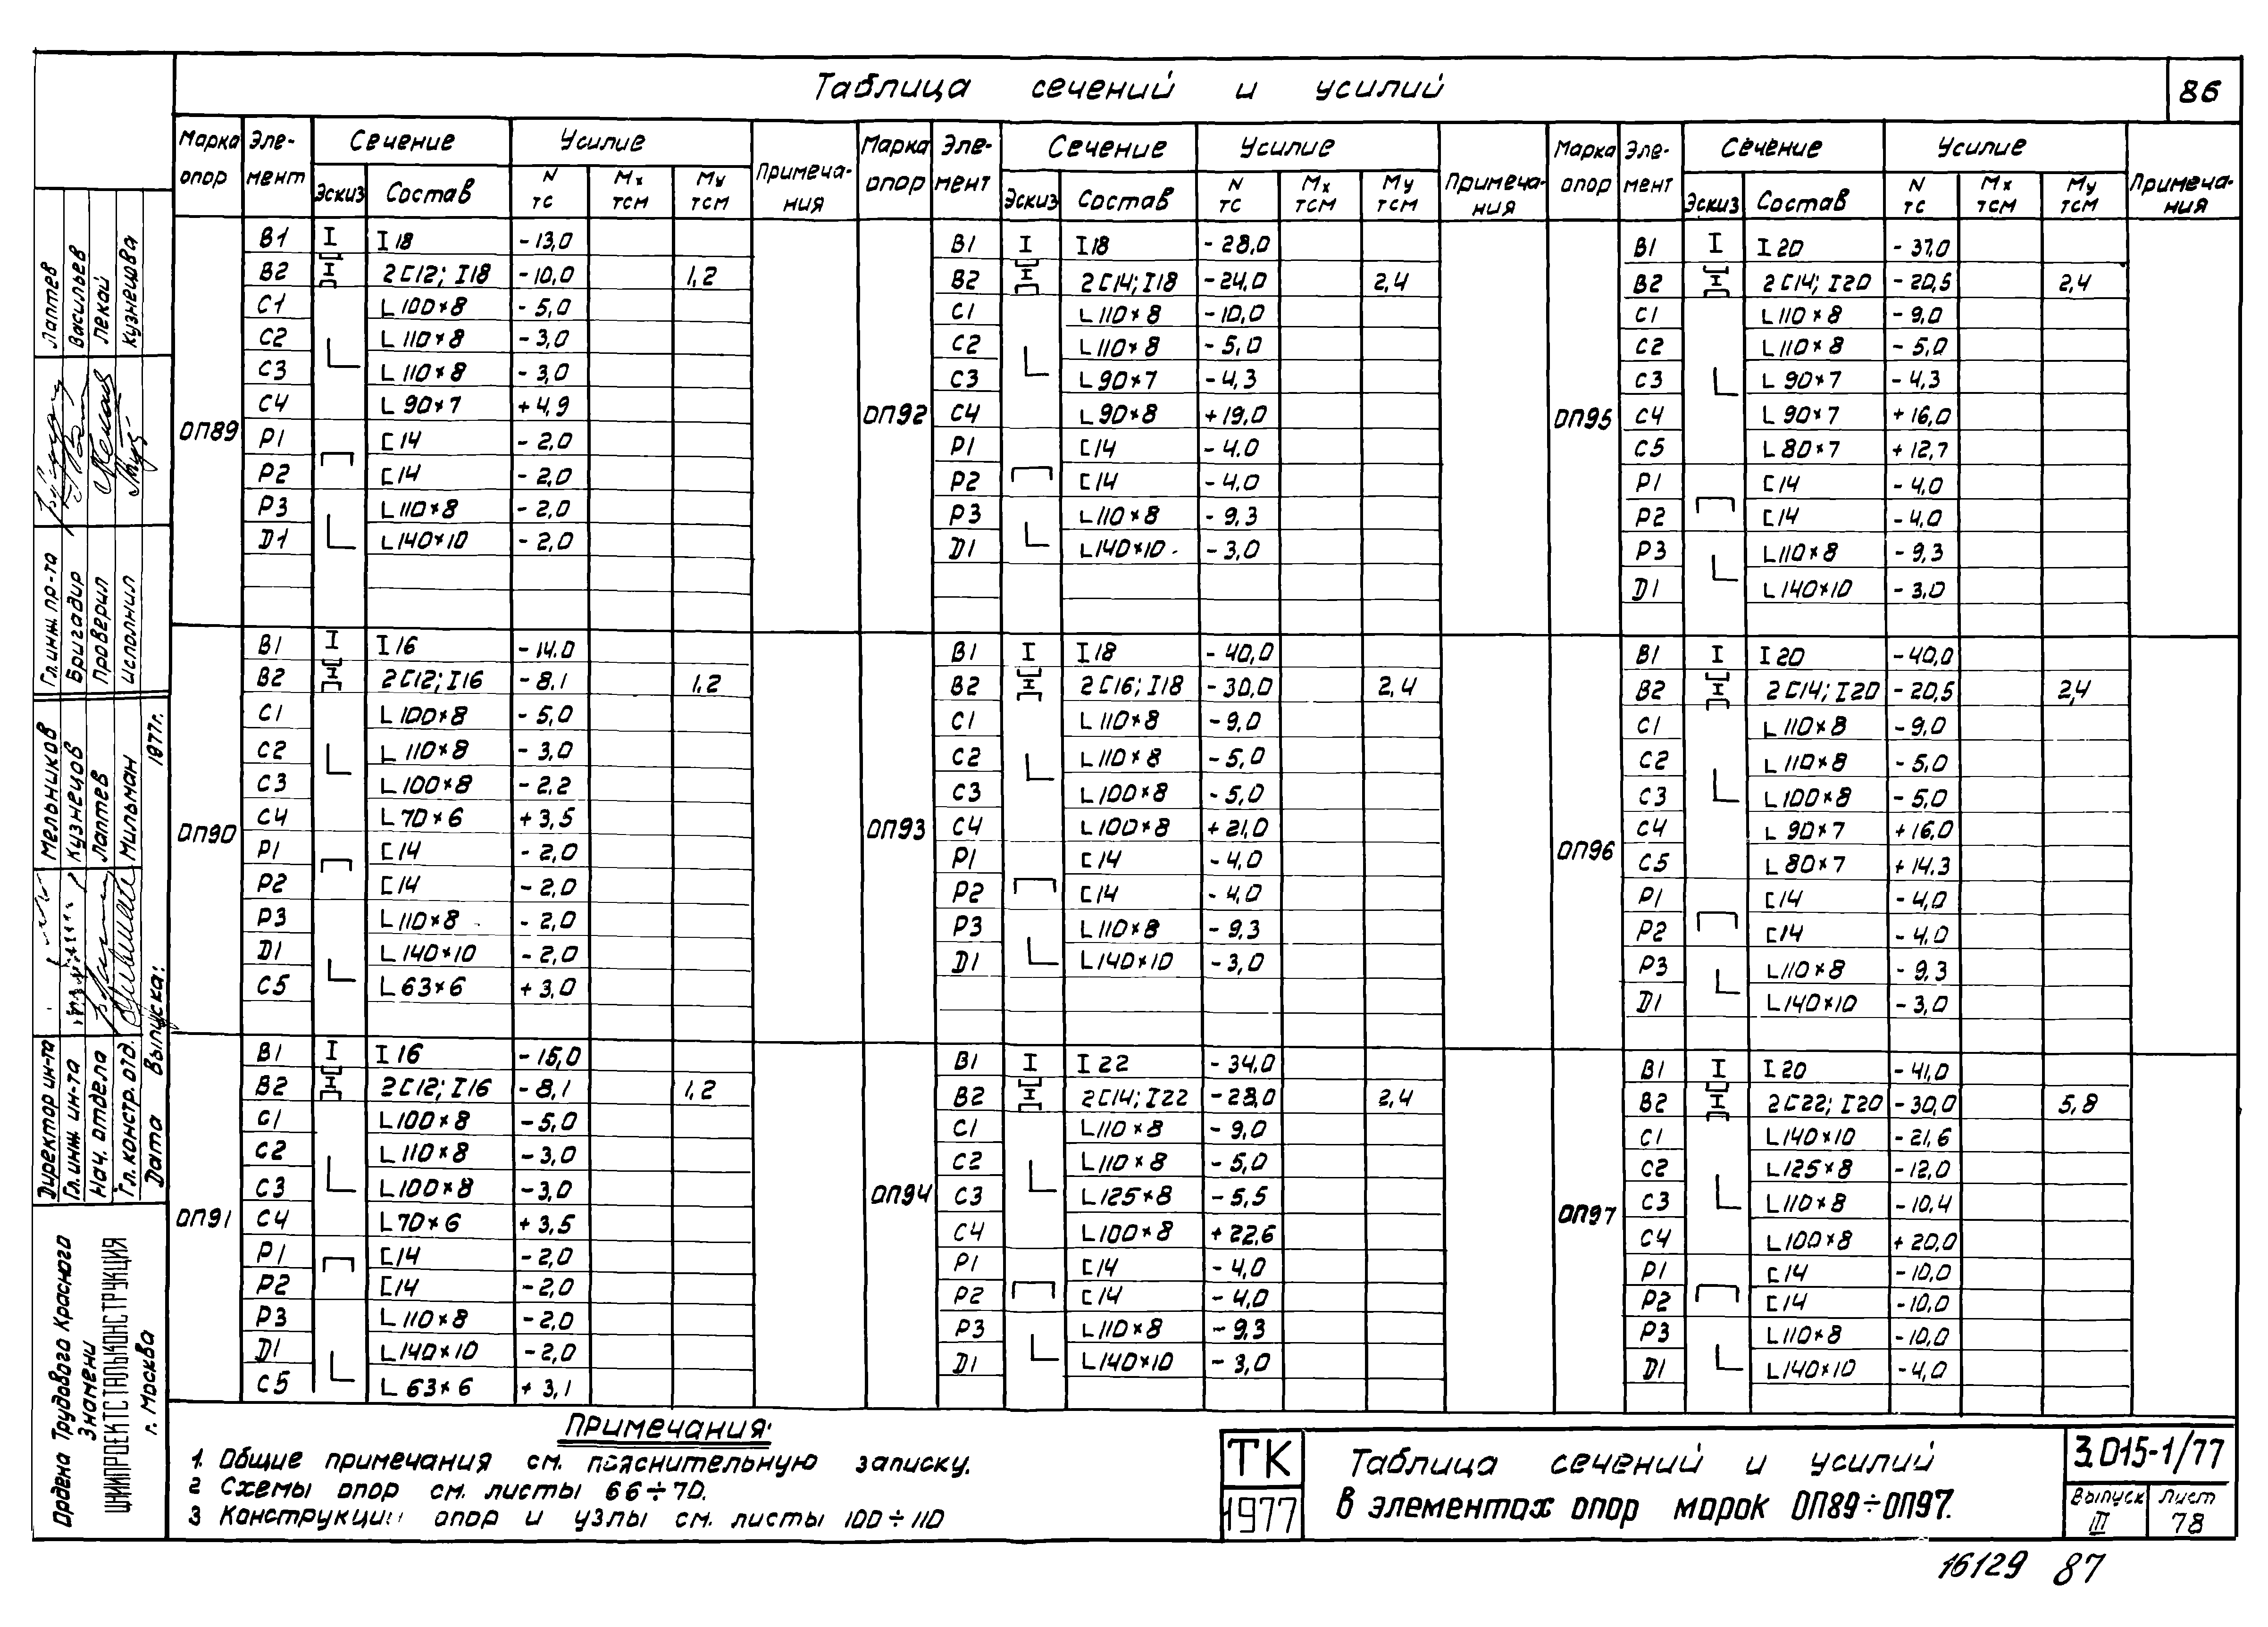 Таблица сечений и усилий
86
Марка опор | Эле-мент | Сечение | Усилие | Примеча-ния
Эскиз | Состав | N тс | Mx тсм | My тсм
ОП89
В1 I18 -13,0
В2 2С12; I18 -10,0 1,2
С1 L100×8 -5,0
С2 L110×8 -3,0
С3 L110×8 -3,0
С4 L90×7 +4,9
Р1 С14 -2,0
Р2 С14 -2,0
Р3 L110×8 -2,0
D1 L140×10 -2,0
ОП90
В1 I16 -14.0
В2 2С12; I16 -8.1 1,2
С1 L100×8 -5,0
С2 L110×8 -3,0
С3 L100×8 -2,2
С4 L70×6 +3,5
Р1 С14 -2,0
Р2 С14 -2,0
Р3 L110×8 -2,0
D1 L140×10 -2,0
С5 L63×6 +3,0
ОП91
В1 I16 -15,0
В2 2С12; I16 -8,1 1,2
С1 L100×8 -5,0
С2 L110×8 -3,0
С3 L100×8 -3,0
С4 L70×6 +3,5
Р1 С14 -2,0
Р2 С14 -2,0
Р3 L110×8 -2,0
D1 L140×10 -2,0
С5 L63×6 +3,1
Марка опор | Эле-мент | Сечение | Усилие | Примеча-ния
Эскиз | Состав | N тс | Mx тсм | My тсм
ОП92
В1 I18 -28,0
В2 2С14; I18 -24,0 2,4
С1 L110×8 -10,0
С2 L110×8 -5,0
С3 L90×7 -4,3
С4 L90×8 +19,0
Р1 С14 -4,0
Р2 С14 -4,0
Р3 L110×8 -9,3
D1 L140×10 -3,0
ОП93
В1 I18 -40,0
В2 2С16; I18 -30,0 2,4
С1 L110×8 -9,0
С2 L110×8 -5,0
С3 L100×8 -5,0
С4 L100×8 +21,0
Р1 С14 -4,0
Р2 С14 -4,0
Р3 L110×8 -9,3
D1 L140×10 -3,0
ОП94
В1 I22 -34,0
В2 2С14; I22 -28,0 2,4
С1 L110×8 -9,0
С2 L110×8 -5,0
С3 L125×8 -5,5
С4 L100×8 +22,6
Р1 С14 -4,0
Р2 С14 -4,0
Р3 L110×8 -9,3
D1 L140×10 -3,0
Марка опор | Эле-мент | Сечение | Усилие | Примеча-ния
Эскиз | Состав | N тс | Mx тсм | My тсм
ОП95
В1 I20 -37,0
В2 2С14; I20 -20,5 2,4
С1 L110×8 -9,0
С2 L110×8 -5,0
С3 L90×7 -4,3
С4 L90×7 +16,0
С5 L80×7 +12,7
Р1 С14 -4,0
Р2 С14 -4,0
Р3 L110×8 -9,3
D1 L140×10 -3,0
ОП96
В1 I20 -40,0
В2 2С14; I20 -20,5 2,4
С1 L110×8 -9,0
С2 L110×8 -5,0
С3 L100×8 -5,0
С4 L90×7 +16,0
С5 L80×7 +14.3
Р1 С14 -4,0
Р2 С14 -4,0
Р3 L110×8 -9,3
D1 L140×10 -3,0
ОП97
В1 I20 -41,0
В2 2С22; I20 -30,0 5,8
С1 L140×10 -21,6
С2 L125×8 -12,0
С3 L110×8 -10,4
С4 L100×8 +20,0
Р1 С14 -10,0
Р2 С14 -10,0
Р3 L110×8 -10,0
D1 L140×10 -4,0
Примечания:
1. Общие примечания см. пояснительную записку.
2 Схемы опор см. листы 66÷70.
3 Конструкции опор и узлы см. листы 100÷110
ТК
1977
Таблица сечений и усилий
в элементах опор марок ОП89÷ОП97.
3.015-1/77
Выпуск III
Лист 78
16129 87
Гл.инж.пр-та Лаптев
Бригадир Васильев
Проверил Пекай
Исполнил Кузнецова
Директор ин-та Мельников
Гл.инж.ин-та Кузнецов
Нач.отдела Лаптев
Гл.констр.отд. Мильман
Дата выпуска: 1977г.
Ордена Трудового Красного
Знамени
ЦНИИПРОЕКТСТАЛЬКОНСТРУКЦИЯ
г. Москва